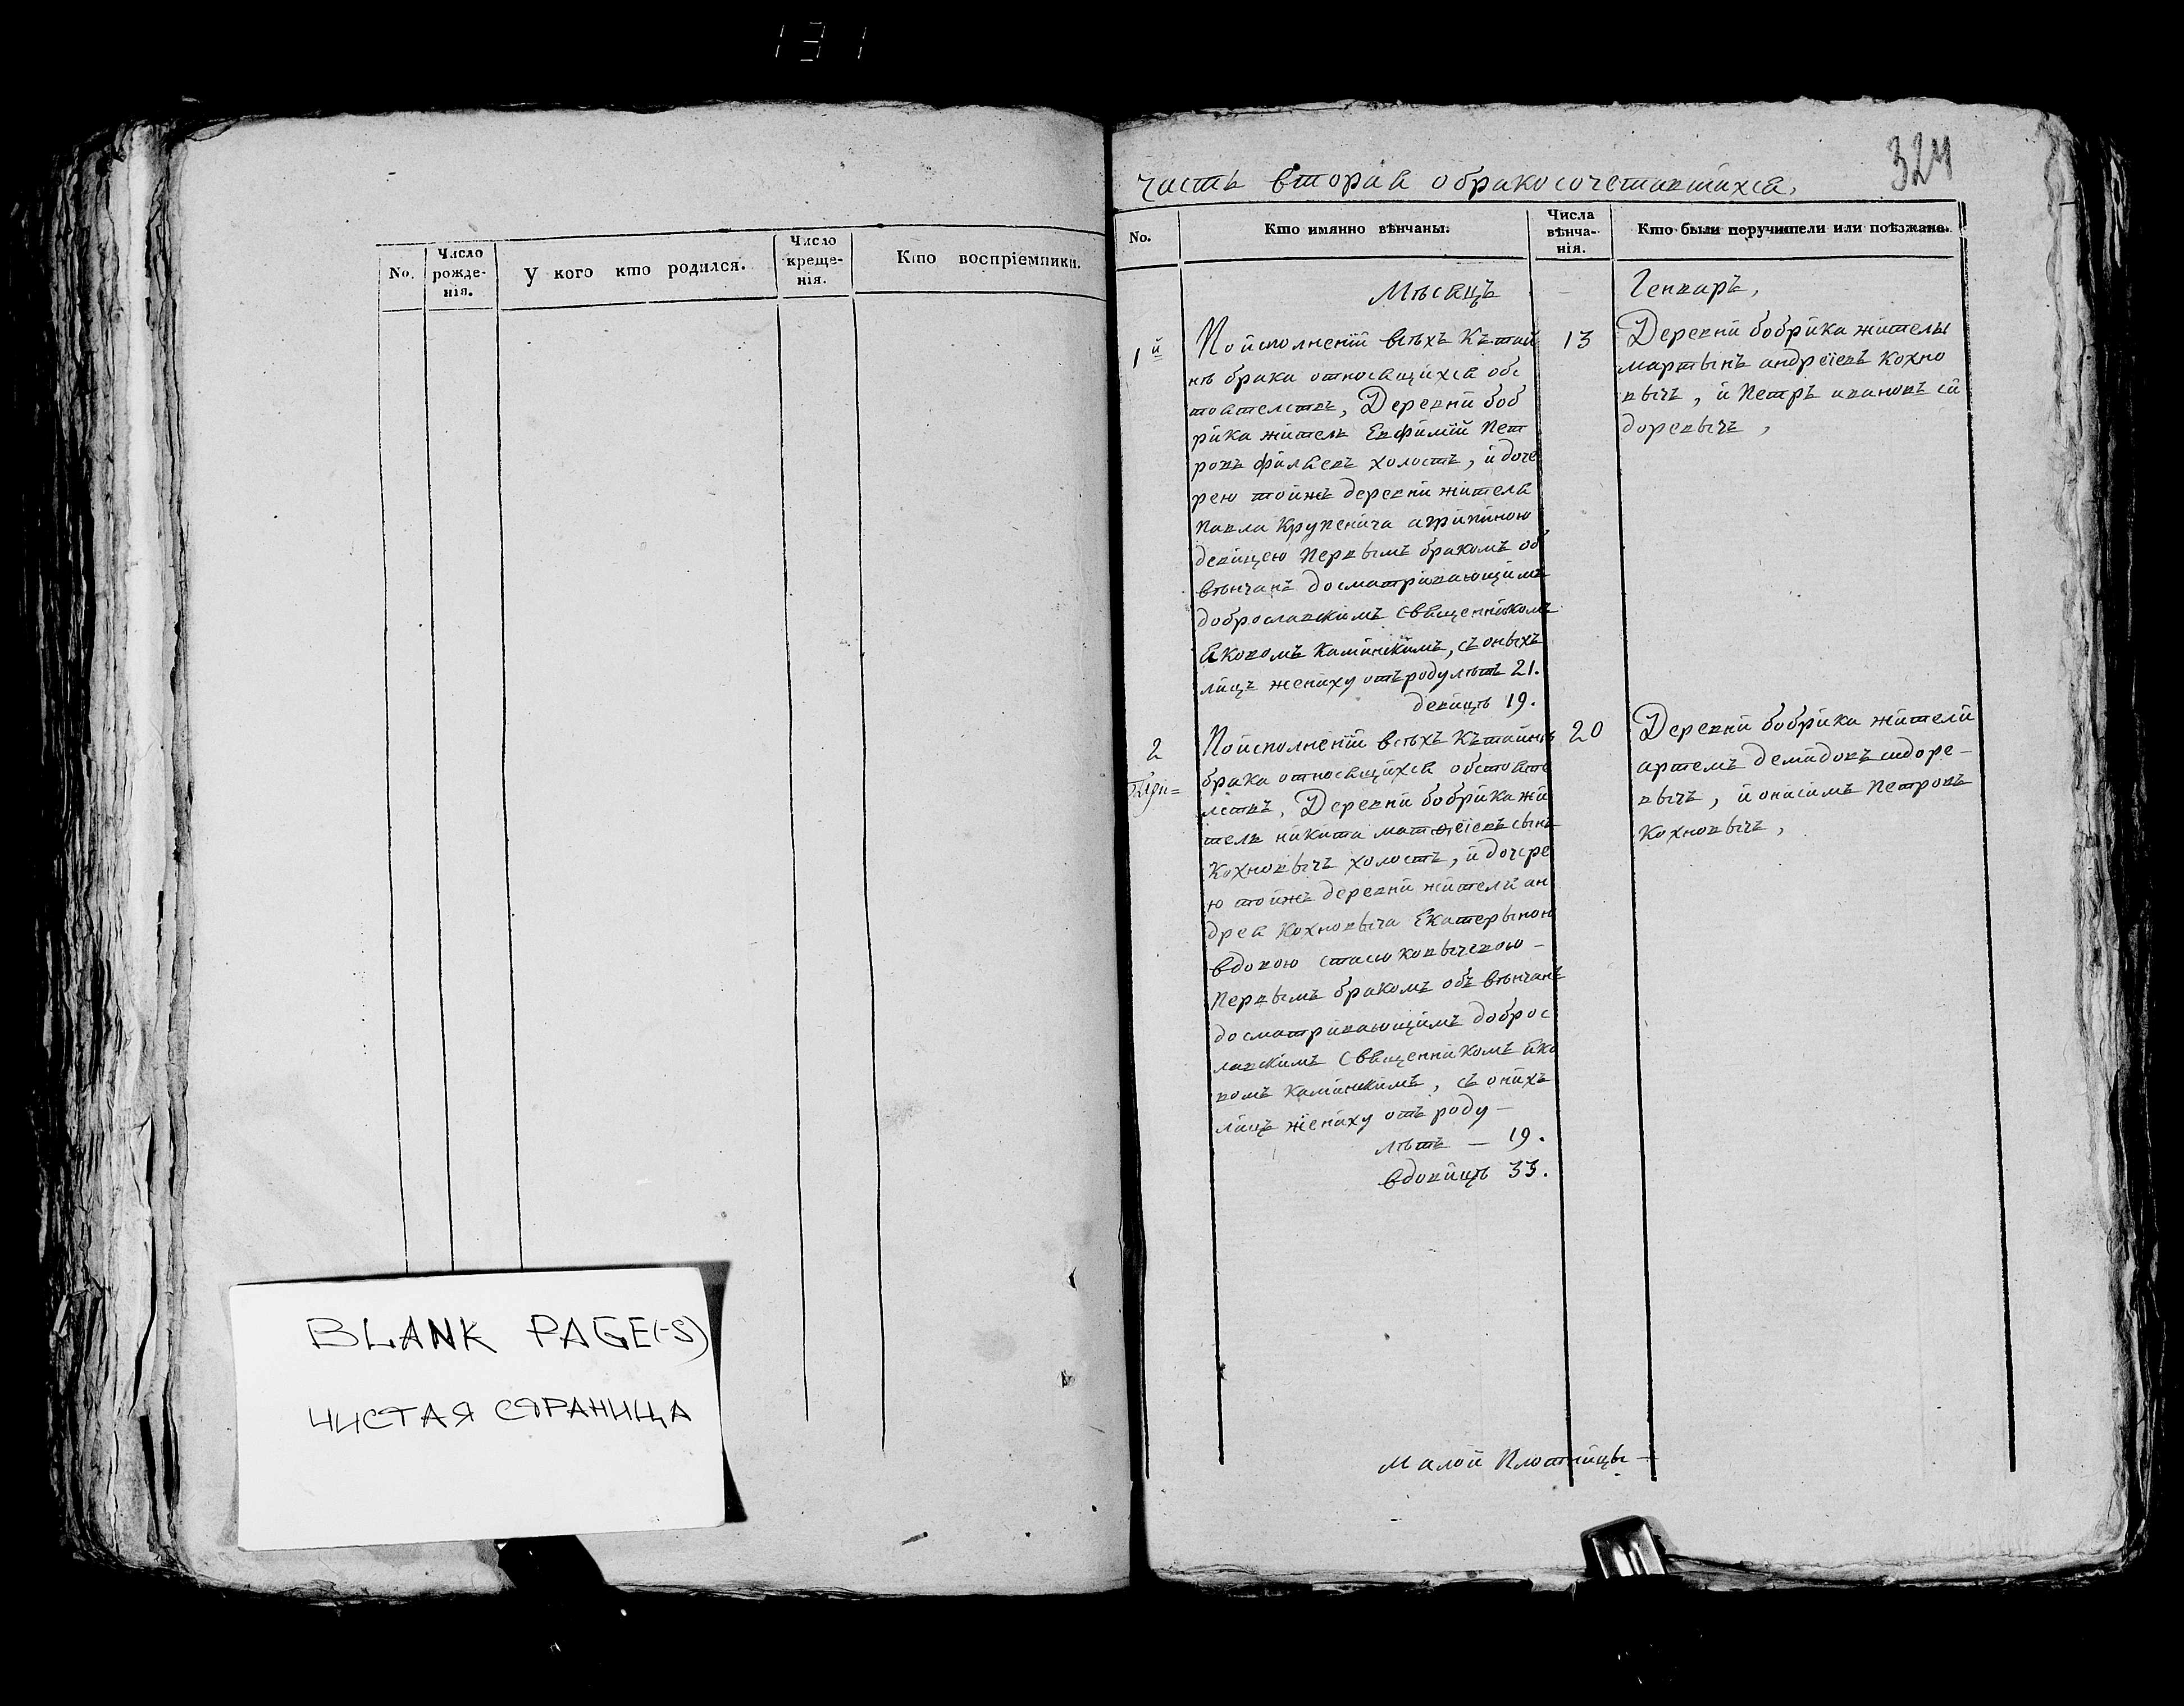 131
No.
Число рожде- нія.
У кого кто родился.
Число креще- нія.
Кто воспріемники.
BLANK PAGE(-S)
ЧИСТАЯ СТРАНИЦА
324
Часть вторая о бракосочетавшихся,
No.
Кто имянно вѣнчаны.
Числа вѣнча- нія.
Кто были поручители или поѣзжане.
Мѣсяцъ
Генварь,
1й
По исполненіи всѣхъ къ тай
нѣ брака относящихся обс
тоятелствъ, Деревни боб
рика житель Евфимій Пет
ровъ филаевъ холостъ, и доче
рею тойжъ деревни жителя
Павла Крупенича агрипиною
девицею Первымъ бракомъ об
вѣнчанъ досматривающимъ
доброславскимъ священникомъ
Яковомъ Каминскимъ, съ оныхъ
лицъ жениху отъ роду лѣтъ 21.
девицѣ 19.
13
Деревни бобрика жители
мартынъ андреіевъ Кохно
вычъ, и Петръ ивановъ си
доревычъ,
2
По исполненіи всѣхъ къ тайнѣ
брака относящихся обстояте
лствъ, Деревни бобрика жи
тель никита матфеіевъ сынъ
Кохновычъ холостъ, и дочере
ю тойжъ деревни жителя ан
дрея Кохновыча Екатерыною
вдовою стасюковычевою –
Первымъ бракомъ объ вѣнчанъ
досматривающимъ доброс
лавскимъ священникомъ яко
вомъ Каминскимъ, съ онихъ
лицъ жениху отъ роду –
лѣтъ – 19.
вдовицѣ 33.
20
Деревни бобрика жители
артемъ демидовъ сидоре–
вычъ, и онисимъ Петровъ
Кохновычъ,
Малой Плотницы –